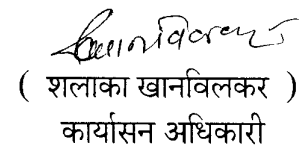 ( शलाका खानविलकर )
कार्यासन अधिकारी